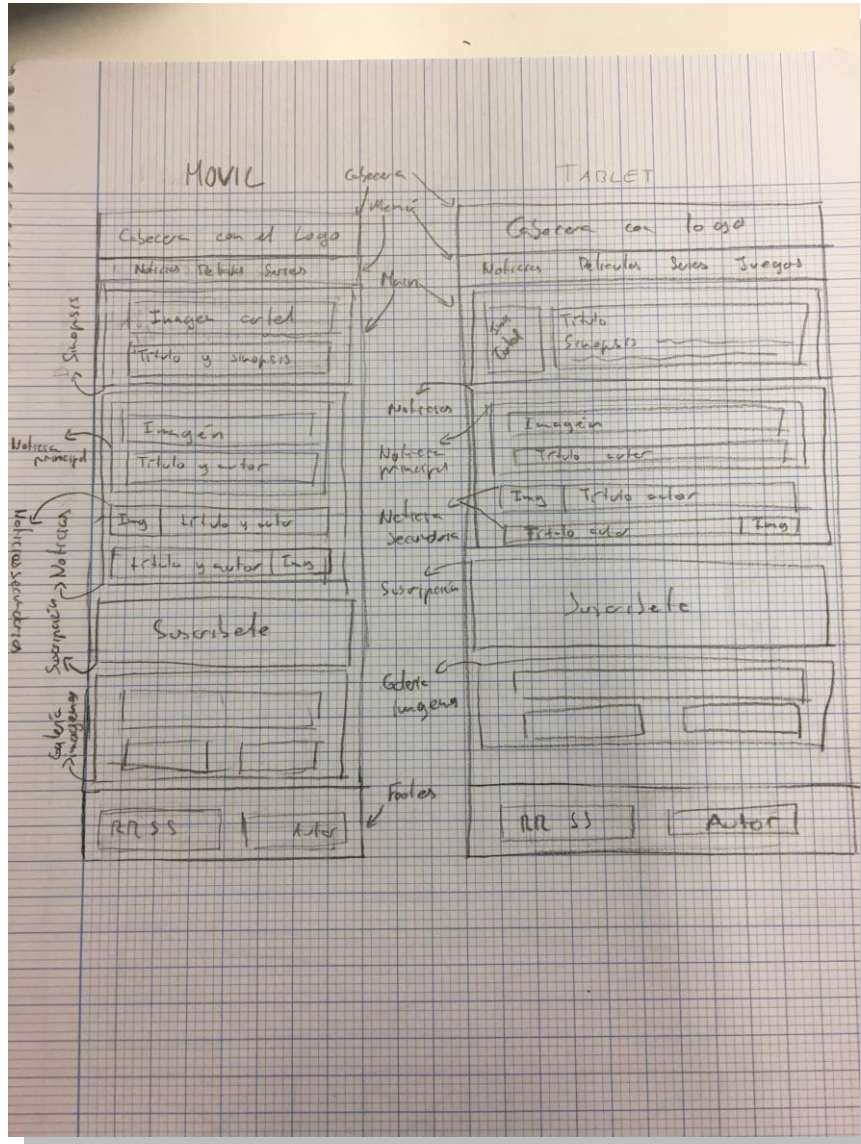 MOVIL
Cabecera con el Logo
Noticias Peliculas Series
Imagen cartel
Título y sinopsis
Sinopsis
Imagén
Título y autor
Noticia principal
Img título y autor
título y autor Img
Noticias
Noticias secundarias
Suscribete
Suscripación
Galería imagenes
RRSS Autor
Cabecera
Menú
Main
Noticias
Noticia principal
Noticia secundaria
Suscripción
Galería imagenes
Footer
TABLET
Cabecera con logo
Noticias Peliculas Series Juegos
Cartel
Título
Sinopsis
Imagén
Título autor
Img Título autor
Título autor Img
Suscribete
RRSS Autor